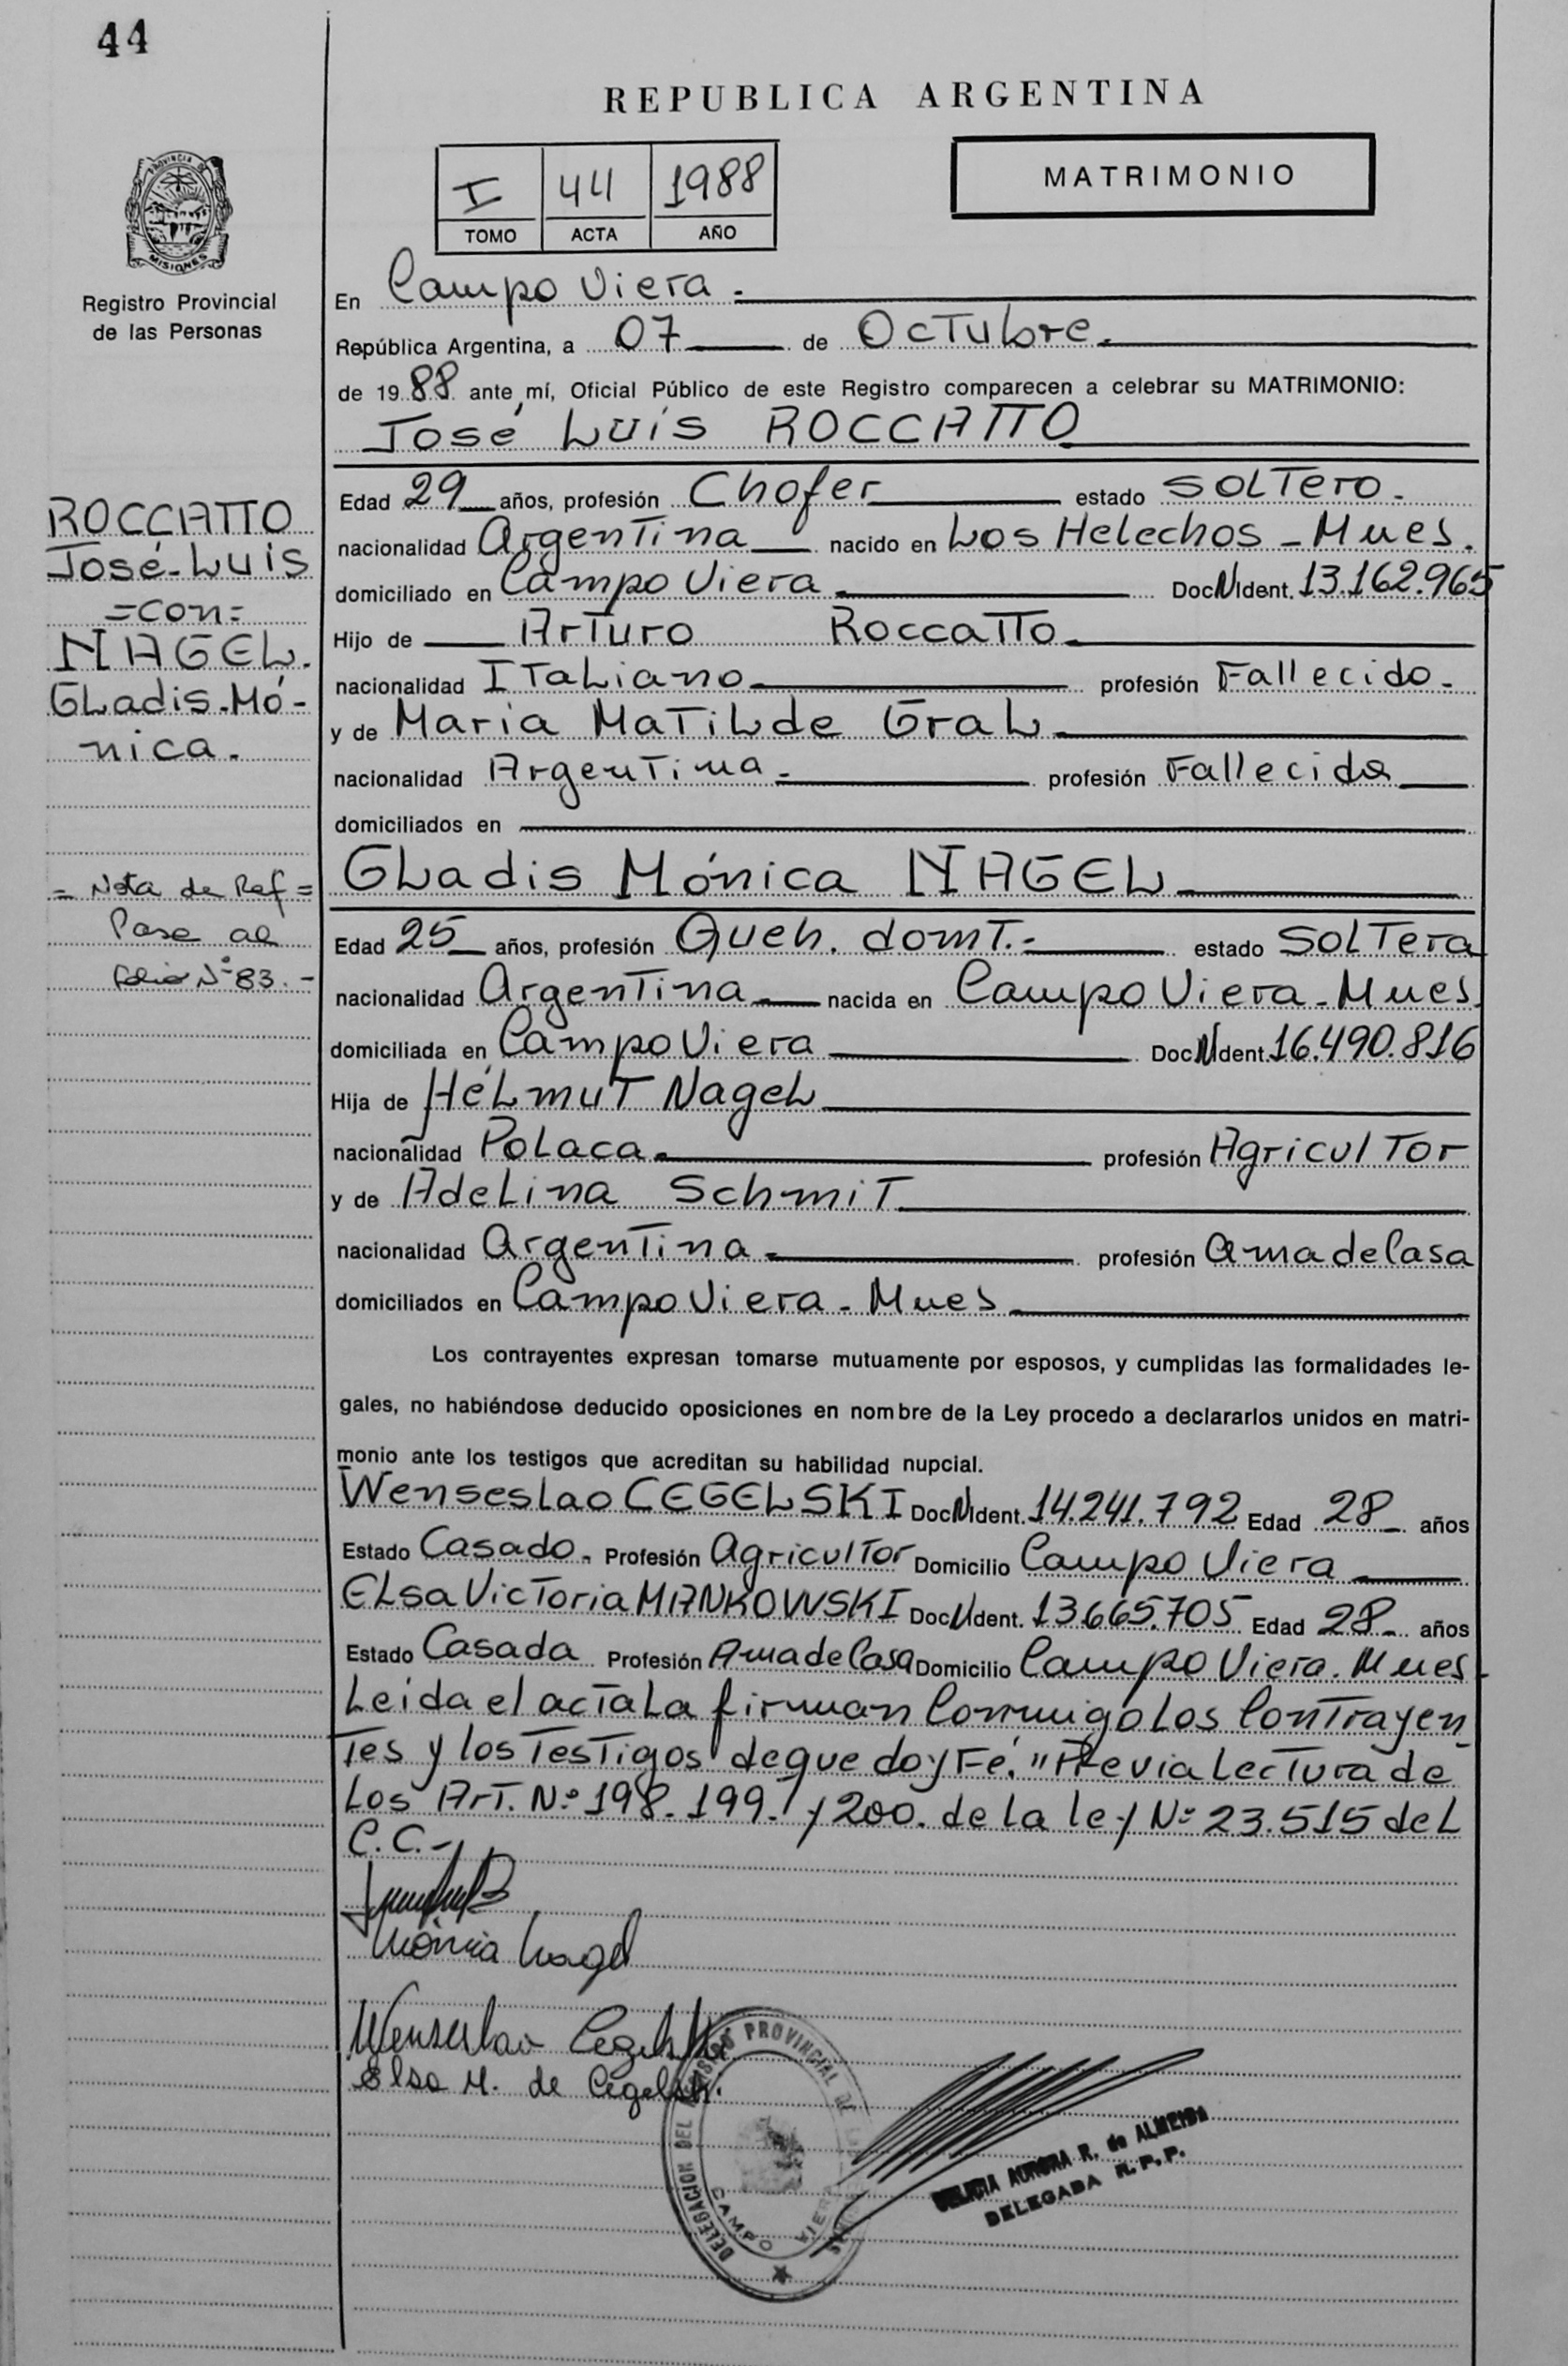 44
REPUBLICA ARGENTINA
I 44 1988
TOMO ACTA AÑO
MATRIMONIO
PROVINCIA DE
MISIONES
Registro Provincial
de las Personas
En Campo Viera.
República Argentina, a 07 de Octubre.
de 1988 ante mí, Oficial Público de este Registro comparecen a celebrar su MATRIMONIO:
José Luís ROCCATTO
Edad 29 años, profesión Chofer estado SOLTero.
nacionalidad Argentina nacido en Los Helechos - Mnes.
domiciliado en Campo Viera Doc N Ident. 13.162.965
Hijo de Arturo Roccatto
nacionalidad Italiano profesión Fallecido.
y de Maria Matilde Gral
nacionalidad Argentina profesión Fallecida
domiciliados en
Gladis Mónica NAGEL
Edad 25 años, profesión Queh. domt. estado Soltera
nacionalidad Argentina nacida en Campo Viera - Mnes
domiciliada en Campo Viera Doc N Ident. 16.490.816
Hija de Hélmut Nagel
nacionalidad Polaca profesión Agricultor
y de Adelina Schmit
nacionalidad Argentina profesión Ama de Casa
domiciliados en Campo Viera - Mnes
Los contrayentes expresan tomarse mutuamente por esposos, y cumplidas las formalidades le-
gales, no habiéndose deducido oposiciones en nombre de la Ley procedo a declararlos unidos en matri-
monio ante los testigos que acreditan su habilidad nupcial.
Wenseslao CEGELSKI Doc N Ident. 14.241.792 Edad 28 años
Estado Casado. Profesión Agricultor Domicilio Campo Viera
Elsa Victoria MANKOWSKI Doc N Ident. 13.665.705 Edad 28 años
Estado Casada Profesión Ama de Casa Domicilio Campo Viera. Mnes
Leida el acta la firman Conmigo los Contrayen_
tes y los Testigos de que doy Fé. "Previa Lectura de
Los Art. Nº 198. 199. y 200. de la ley Nº 23.515 del
C.C.-
Mónica Nagel
Wenseslao Cegelski
Elsa M. de Cegelski.
DELEGACION DEL REGISTRO PROVINCIAL DE LAS PERSONAS
CAMPO VIERA
AURORA R. de ALMEIDA
DELEGADA R.P.P.
ROCCATTO
José Luis
=con=
NAGEL.
Gladis Mó-
nica.
= Nota de Ref =
Pase al
folio Nº 83.-